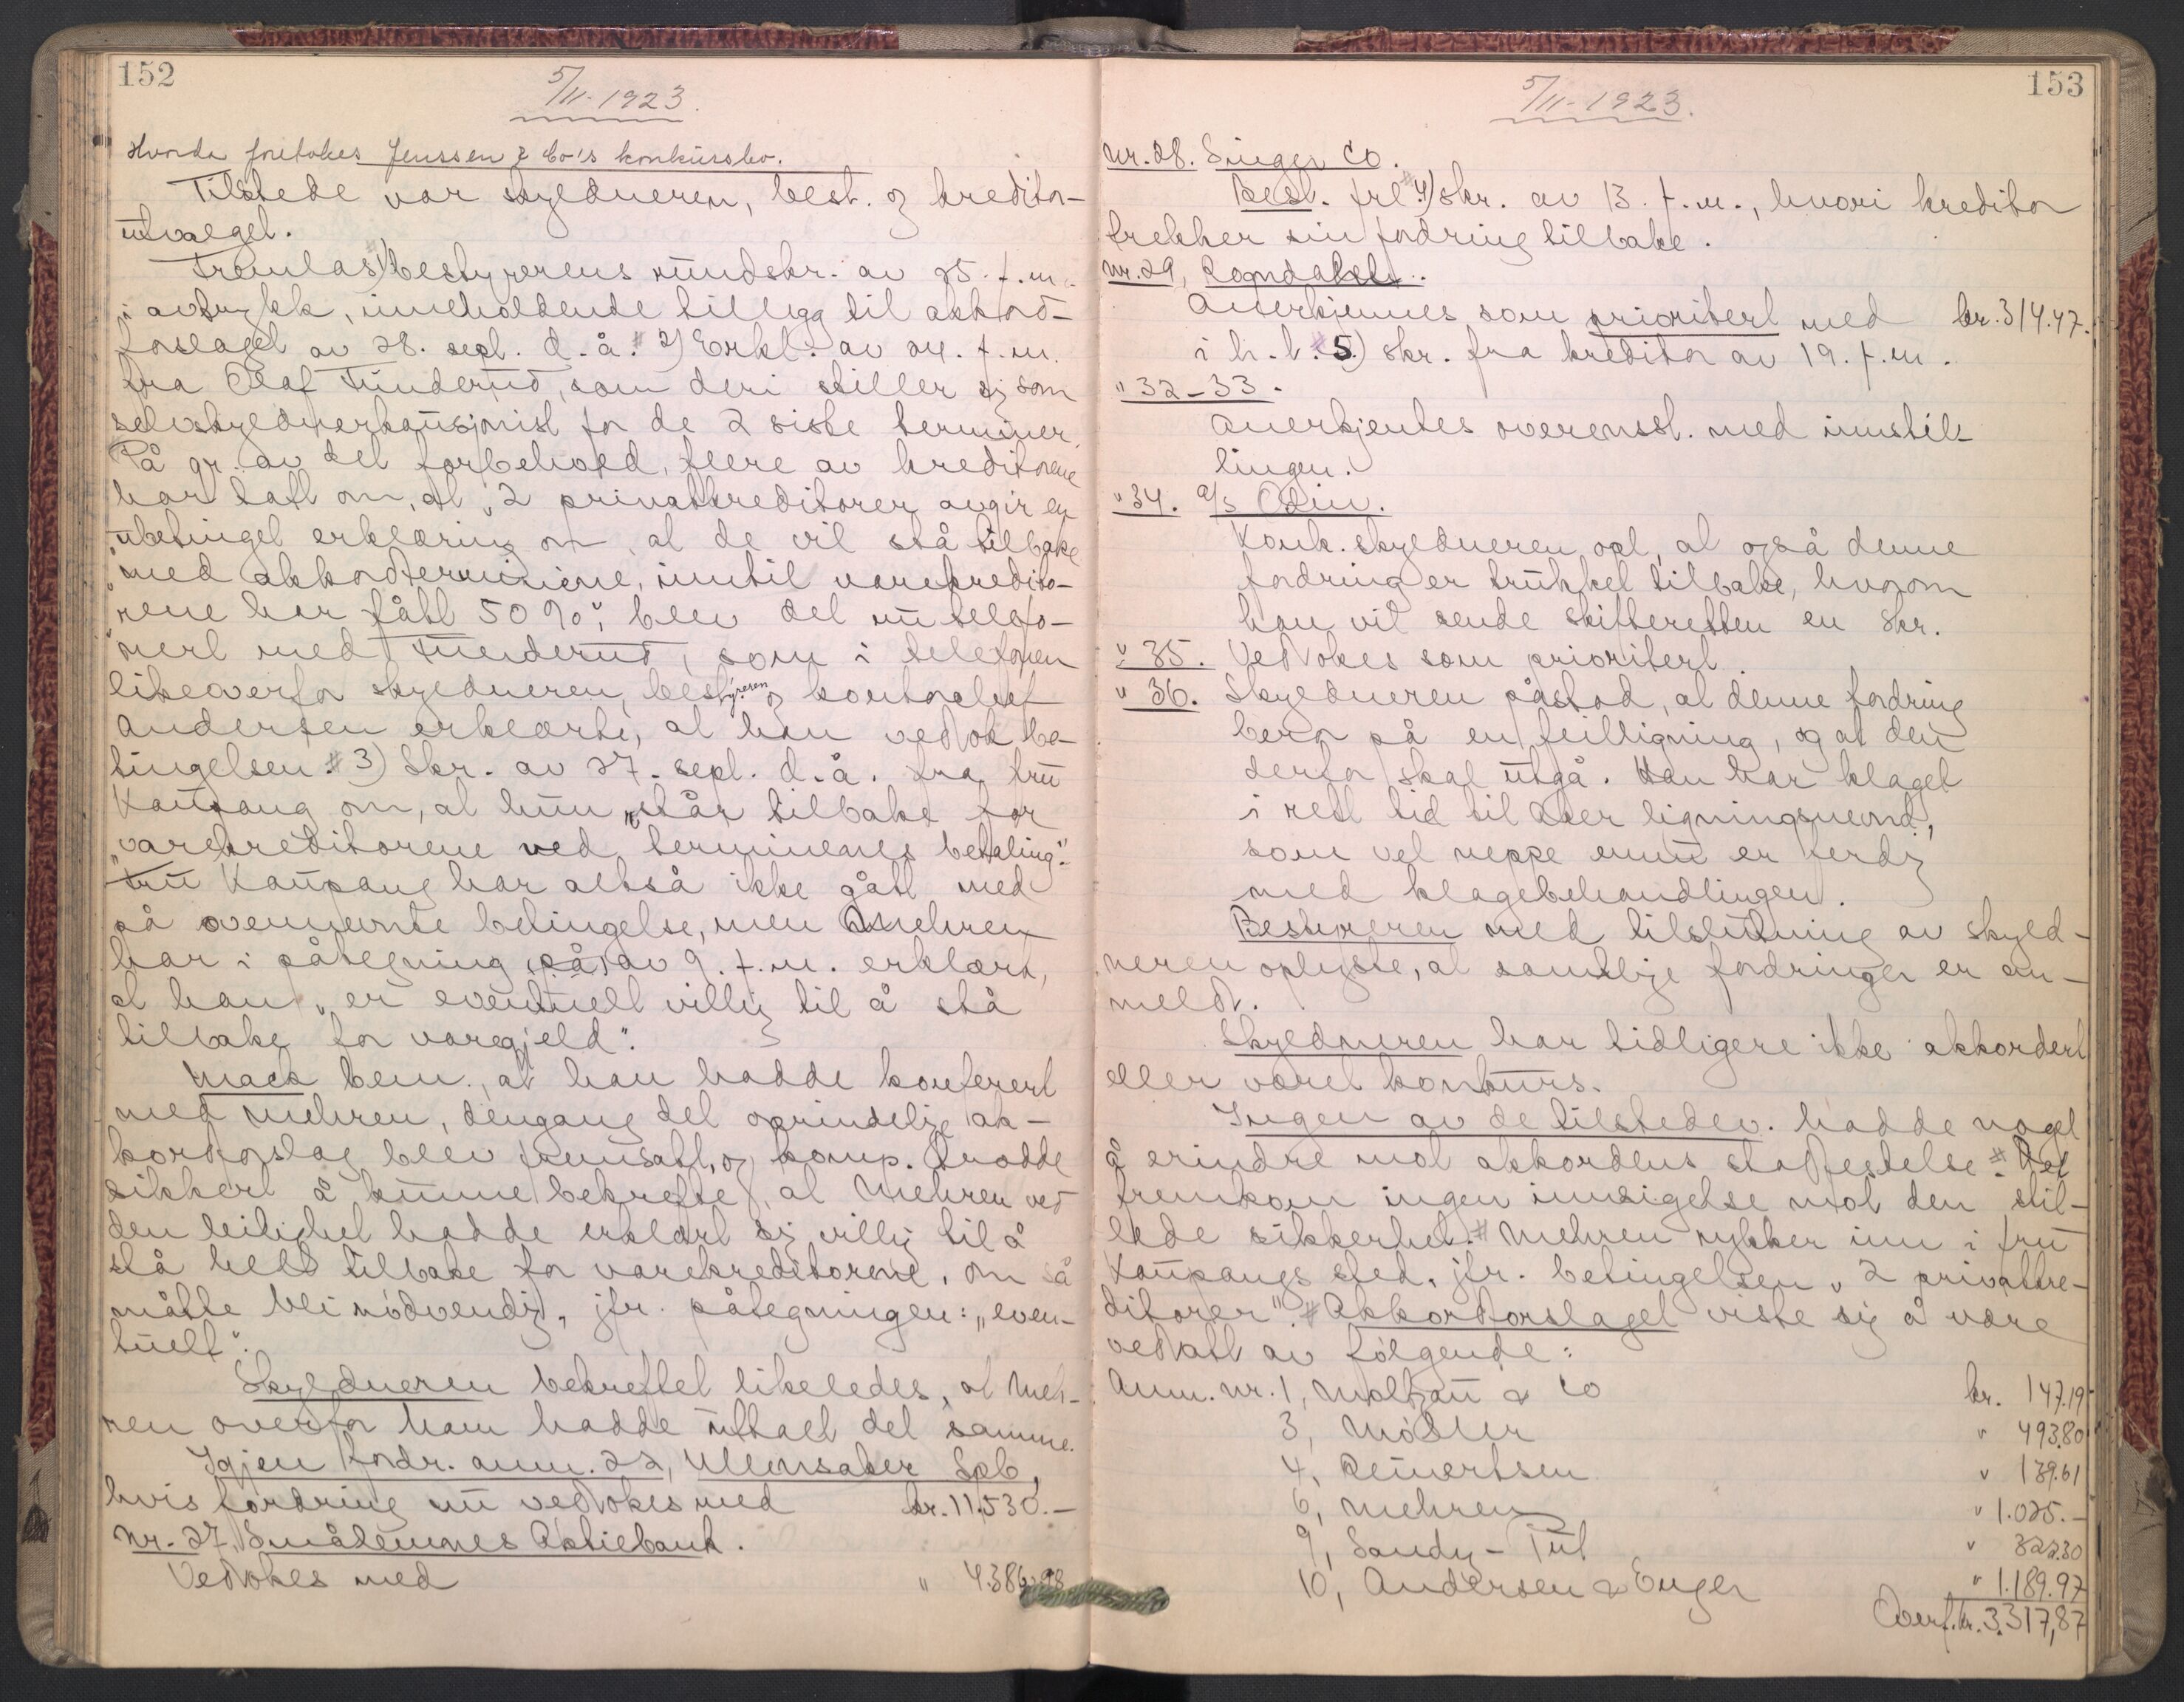 152
5/11-1923.
Hvorda foretokes Jenssen & Co's konkursbo.
Tilstede var skyldneren, best. og kreditor-
utvalget.
Fremlas 1) bestyrerens rundskr. av 25. f.m.
i avtrykk, inneholdende tillegg til akkord-
forslaget av 28. sept. d.å. # 2) Erkl. av 24. f.m.
fra Olaf Tunderud, som deri stiller sig som
selvskyldnerkausjonist for de 2 siste terminer.
På gr. av det forbehold, flere av kreditorene
har tatt om, at "2 privatkreditorer avgir en
"ubetinget erklæring om, at de vil stå tilbake
"med akkordterminene, inntil varekredito-
"rene har fått 50%", blev det nu telefo-
nert med Tunderud, som i telefonen
likeoverfor skyldneren, bestyreren og kontorchef
Andersen erklærte, at han vedtok be-
tingelsen. # 3) Skr. av 27. sept. d.å. fra fru
Kaupang om, at hun "står tilbake for
"varekreditorene ved terminenes betaling".
Fru Kaupang har altså ikke gått med
på ovennevnte betingelse, men Mehren
har i påtegning (på) av 9. f.m. erklært,
at han "er eventuelt villig til å stå
tilbake for varegjeld".
Mack bem., at han hadde konferert
med Mehren, dengang det oprindelige ak-
kordforslag blev fremsatt, og komp. trodde
sikkert å kunne bekrefte, at Mehren ved
den leilighet hadde erklært sig villig til å
stå helt tilbake for varekreditorene, om så
måtte bli nødvendig, jfr. påtegningen: "even-
tuelt".
Skyldneren bekreftet likeledes, at Meh-
ren overfor ham hadde uttalt det samme.
Igjen fordr. anm. 22, Ullensaker Spb,
hvis fordring nu vedtokes med kr. 11.530.-
Nr. 27. Smålenenes Aktiebank.
Vedtokes med " 4.386.98
153
5/11-1923.
Nr. 28. Singer Co.
Best. frl. # 4) skr. av 13. f.m., hvori kreditor
trekker sin fordring tilbake.
Nr. 29,
Anerkjennes som prioritert med kr. 314.47.
i h.t. # 5) skr. fra kreditor av 19. f.m.
" 32-33.
Anerkjentes overensst. med innstil-
lingen.
" 34. A/S Odin.
Konk.skyldneren opl., at også denne
fordring er trukket tilbake, hvorom
han vil sende skifteretten en skr.
" 35. Vedtokes som prioritert.
" 36. Skyldneren påstod, at denne fordring
bero på en feilligning, og at den
derfor skal utgå. Han har klaget
i rett tid til Aker ligningsnevnd,
som vel neppe ennu er ferdig
med klagebehandlingen.
Bestyreren med tilslutning av skyld-
neren oplyste, at samtlige fordringer er an-
meldt.
Skyldneren har tidligere ikke akkordert
eller været konkurs.
Ingen av de tilstedev. hadde noget
å erindre mot akkordens stadfestelse # Det
fremkom ingen innsigelse mot den stil-
lede sikkerhet. # Mehren rykker inn i fru
Kaupangs sted, jfr. betingelsen "2 privatkre-
ditorer". # Akkordforslaget viste sig å være
vedtatt av følgende:
Anm. nr. 1, Moltzau & Co kr. 147.19
3, Møller " 493.80
4, Reinertsen " 139.61
6, Mehren " 1.025.-
9, Sandy-Tut " 322.30
10, Andersen & Enger " 1.189.97
Overf. kr. 3.317,87